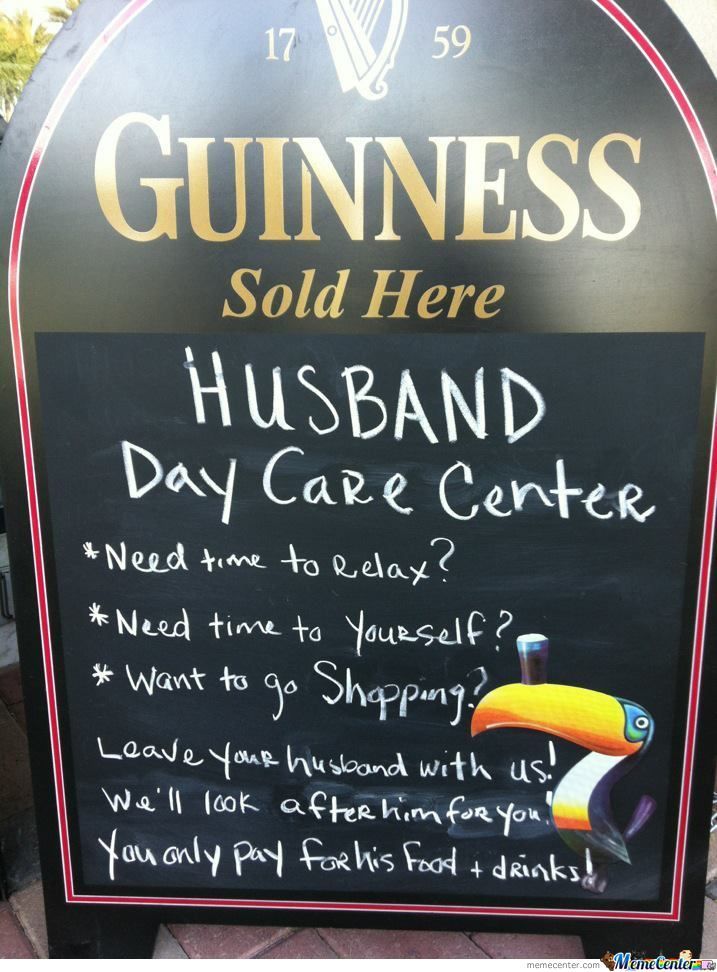 17 59
GUINNESS
Sold Here
HUSBAND
Day Care Center
*Need time to Relax?
*Need time to Yourself?
* Want to go Shopping?
Leave your husband with us!
We'll look after him for you!
You only pay for his food + drinks!
memecenter.com MemeCenter